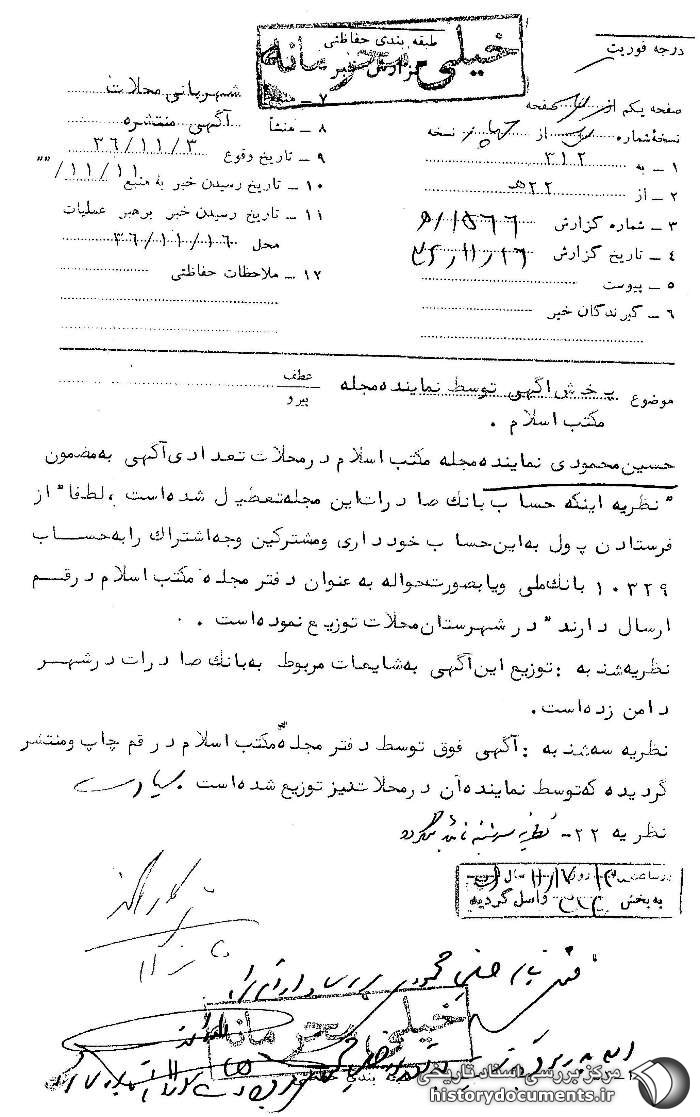 درجه فوریت
طبقه بندی حفاظتی
خیلی محرمانه
گزارش خبر
صفحه یکم از صفحه
نسخه شماره از چهار نسخه
۱ – به ۳۱۲
۲ – از ۲۲هـ
۳ – شماره گزارش ۱۵۶۶
۴ – تاریخ گزارش ۳۶/۱۱/۱۶
۵ – پیوست
۶ – گیرندگان خبر
۷ – شهربانی محلات
۸ – منشأ آگهی منتشره
۹ – تاریخ وقوع ۳۶/۱۱/۳
۱۰ – تاریخ رسیدن خبر به منبع ۱۱/۱۱/""
۱۱ – تاریخ رسیدن خبر برهبر عملیات
محل ۳۶/۱۱/۱۶
۱۲ – ملاحظات حفاظتی
موضوع پخش آگهی توسط نماینده مجله
مکتب اسلام .
عطف
پیرو
حسین محمودی نماینده مجله مکتب اسلام در محلات تعدادی آگهی به مضمون
"نظر به اینکه حساب بانک صادرات این مجله تعطیل شده است ، لطفا" از
فرستادن پول به این حساب خودداری و مشترکین وجه اشتراک را به حساب
۱۰۳۲۹ بانک ملی و یا بصورت حواله به عنوان دفتر مجله مکتب اسلام در قم
ارسال دارند" در شهرستان محلات توزیع نموده است .
نظریه شنبه : توزیع این آگهی به شایعات مربوط به بانک صادرات در شهر
دامن زده است .
نظریه سه شنبه : آگهی فوق توسط دفتر مجله مکتب اسلام در قم چاپ و منتشر
گردیده که توسط نماینده آن در محلات نیز توزیع شده است .
نظریه ۲۲– نظریه سه شنبه تائید میگردد
در ساعت روز سال
به بخش واصل گردید
خیلی محرمانه
طبقه بندی
مرکز بررسی اسناد تاریخی
historydocuments.ir